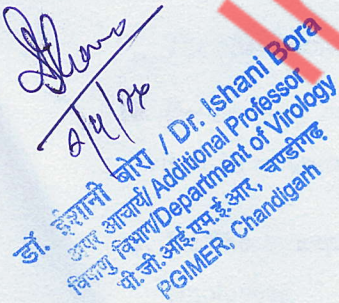 2/4/24
डॉ. ईशानी बोरा / Dr. Ishani Bora
अपर आचार्य/ Additional Professor
विषाणु विभाग/Department of Virology
पी.जी.आई.एम.ई.आर, चण्डीगढ़
PGIMER, Chandigarh